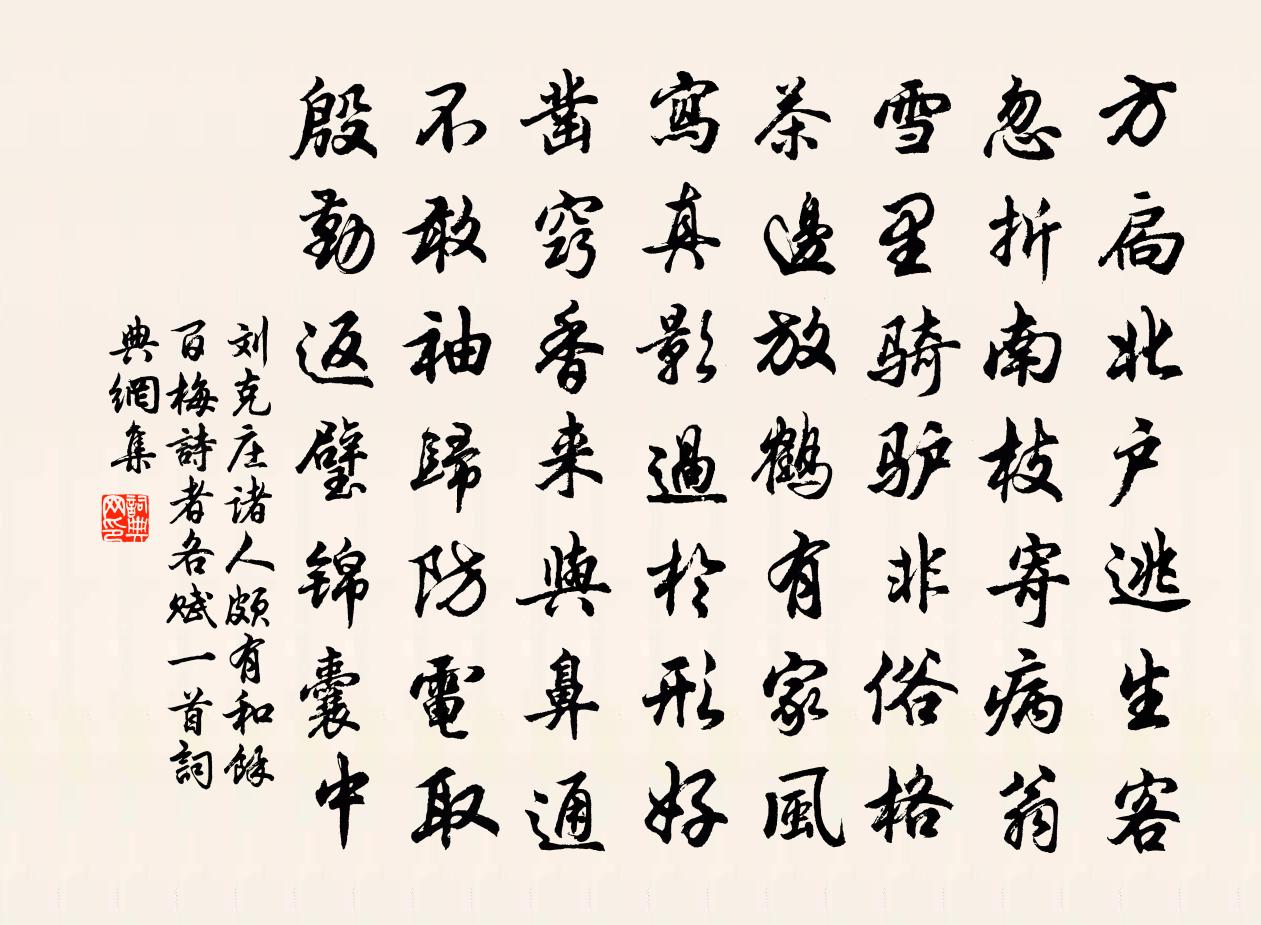 方扃北户逃生客
忽折南枝寄病翁
雪里骑驴非俗格
茶邊放鶴有家風
寫真影過於形好
凿窍香来與鼻通
不敢袖歸防電取
殷勤返璧锦囊中
刘克庄诸人颇有和馀
百梅詩者各赋一首詞
典網集
詞典网印